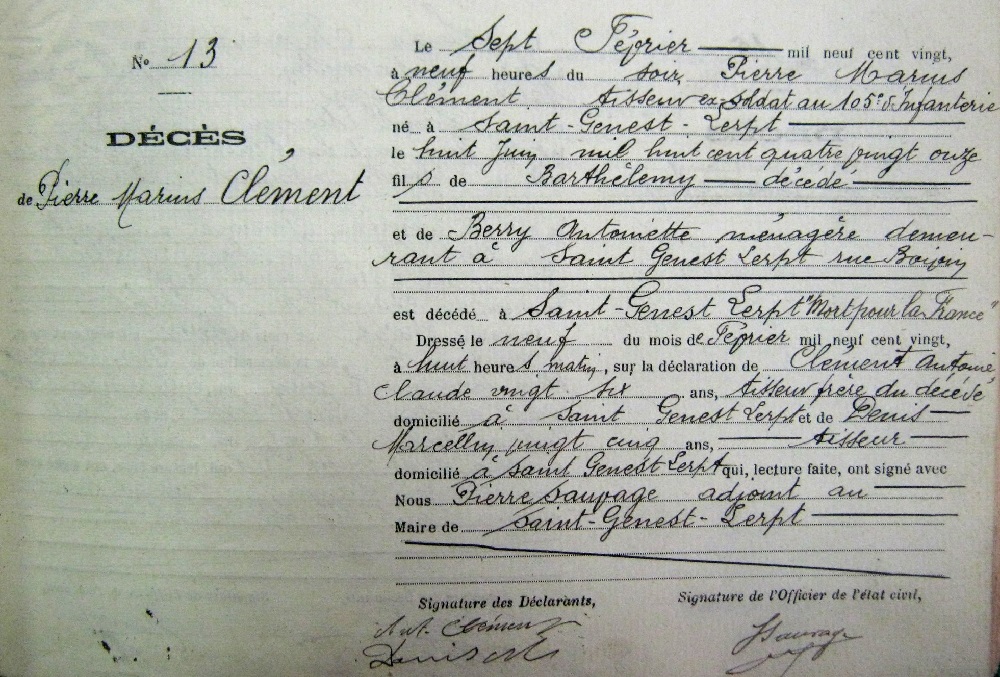 N° 13
DÉCÈS
de Pierre Marius Clément
Le Sept Février mil neuf cent vingt,
à neuf heures du soir, Pierre Marius
Clément tisseur ex-soldat au 105e d'Infanterie
né à Saint-Genest-Lerpt
le huit Juin mil huit cent quatre vingt onze
fils de Barthélemy décédé
et de Berry Antoinette ménagère demeu-
rant à Saint Genest Lerpt rue
est décédé à Saint-Genest Lerpt "Mort pour la France"
Dressé le neuf du mois de Février mil neuf cent vingt,
à huit heures matin, sur la déclaration de Clément Antoine
Claude vingt six ans, tisseur frère du décédé
domicilié à Saint Genest Lerpt et de Denis
Marcellin vingt cinq ans, tisseur
domicilié à Saint Genest Lerpt qui, lecture faite, ont signé avec
Nous Pierre Sauvage adjoint au
Maire de Saint-Genest-Lerpt
Signature des Déclarants,
Signature de l'Officier de l'état civil,
Ant. Clément
Sauvage
Denis